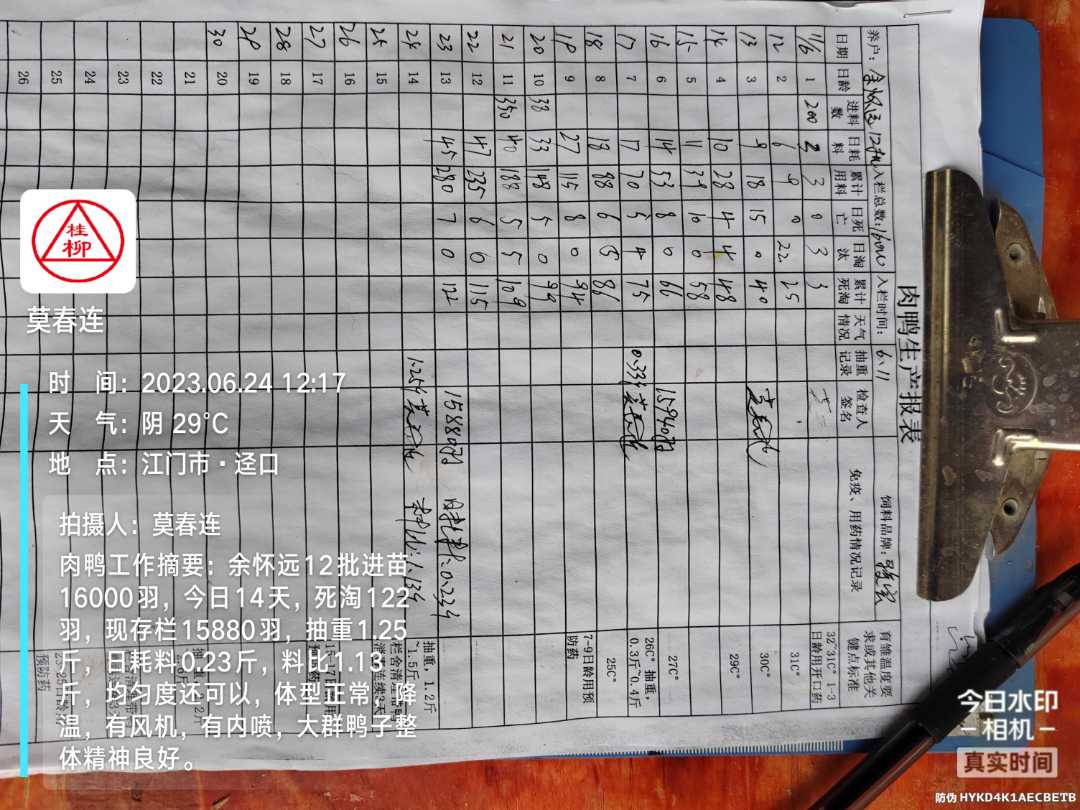 肉鸭生产报表
养户：余怀远12批 入栏总数：16000 入栏时间：6.11 饲料品牌：骏宝
日期 日龄 进料数 日耗料 累计用料 日死亡 日淘汰 累计死淘 天气情况 抽重记录 检查人签名 免疫、用药情况记录 育雏温度要求或其他关键点标准
11/6 1 200 3 3 0 3 3 32~31C° 1-3日龄用开口药
12 2 6 9 0 22 25 31C°
13 3 9 18 15 0 40 30C°
14 4 10 28 4 4 48 29C°
15 5 11 39 10 0 58
16 6 14 53 8 0 66 15940羽 27C°
17 7 17 70 5 4 75 0.33斤 莫春连 26C° 抽重，0.3斤~0.4斤
18 8 18 88 6 5 86 25C°
19 9 27 115 8 0 94 7~9日龄用预防药
20 10 38 33 148 5 0 99
21 11 350 40 188 5 5 109
22 12 47 235 6 0 115
23 13 45 280 7 0 122 15880羽 日耗料:0.23斤
24 14 1.25斤 莫春连 料比:1.13斤 抽重，1.2斤~1.5斤
25 15
26 16
27 17
28 18
29 19
30 20
21
22
23
24
25
26
预防药
桂柳
莫春连
时 间：2023.06.24 12:17
天 气：阴 29°C
地 点：江门市·迳口
拍摄人：莫春连
肉鸭工作摘要：余怀远12批进苗
16000羽，今日14天，死淘122
羽，现存栏15880羽，抽重1.25
斤，日耗料0.23斤，料比1.13
斤，均匀度还可以，体型正常，降
温，有风机，有内喷，大群鸭子整
体精神良好。
今日水印
相机
真实时间
防伪 HYKD4K1AECBETB